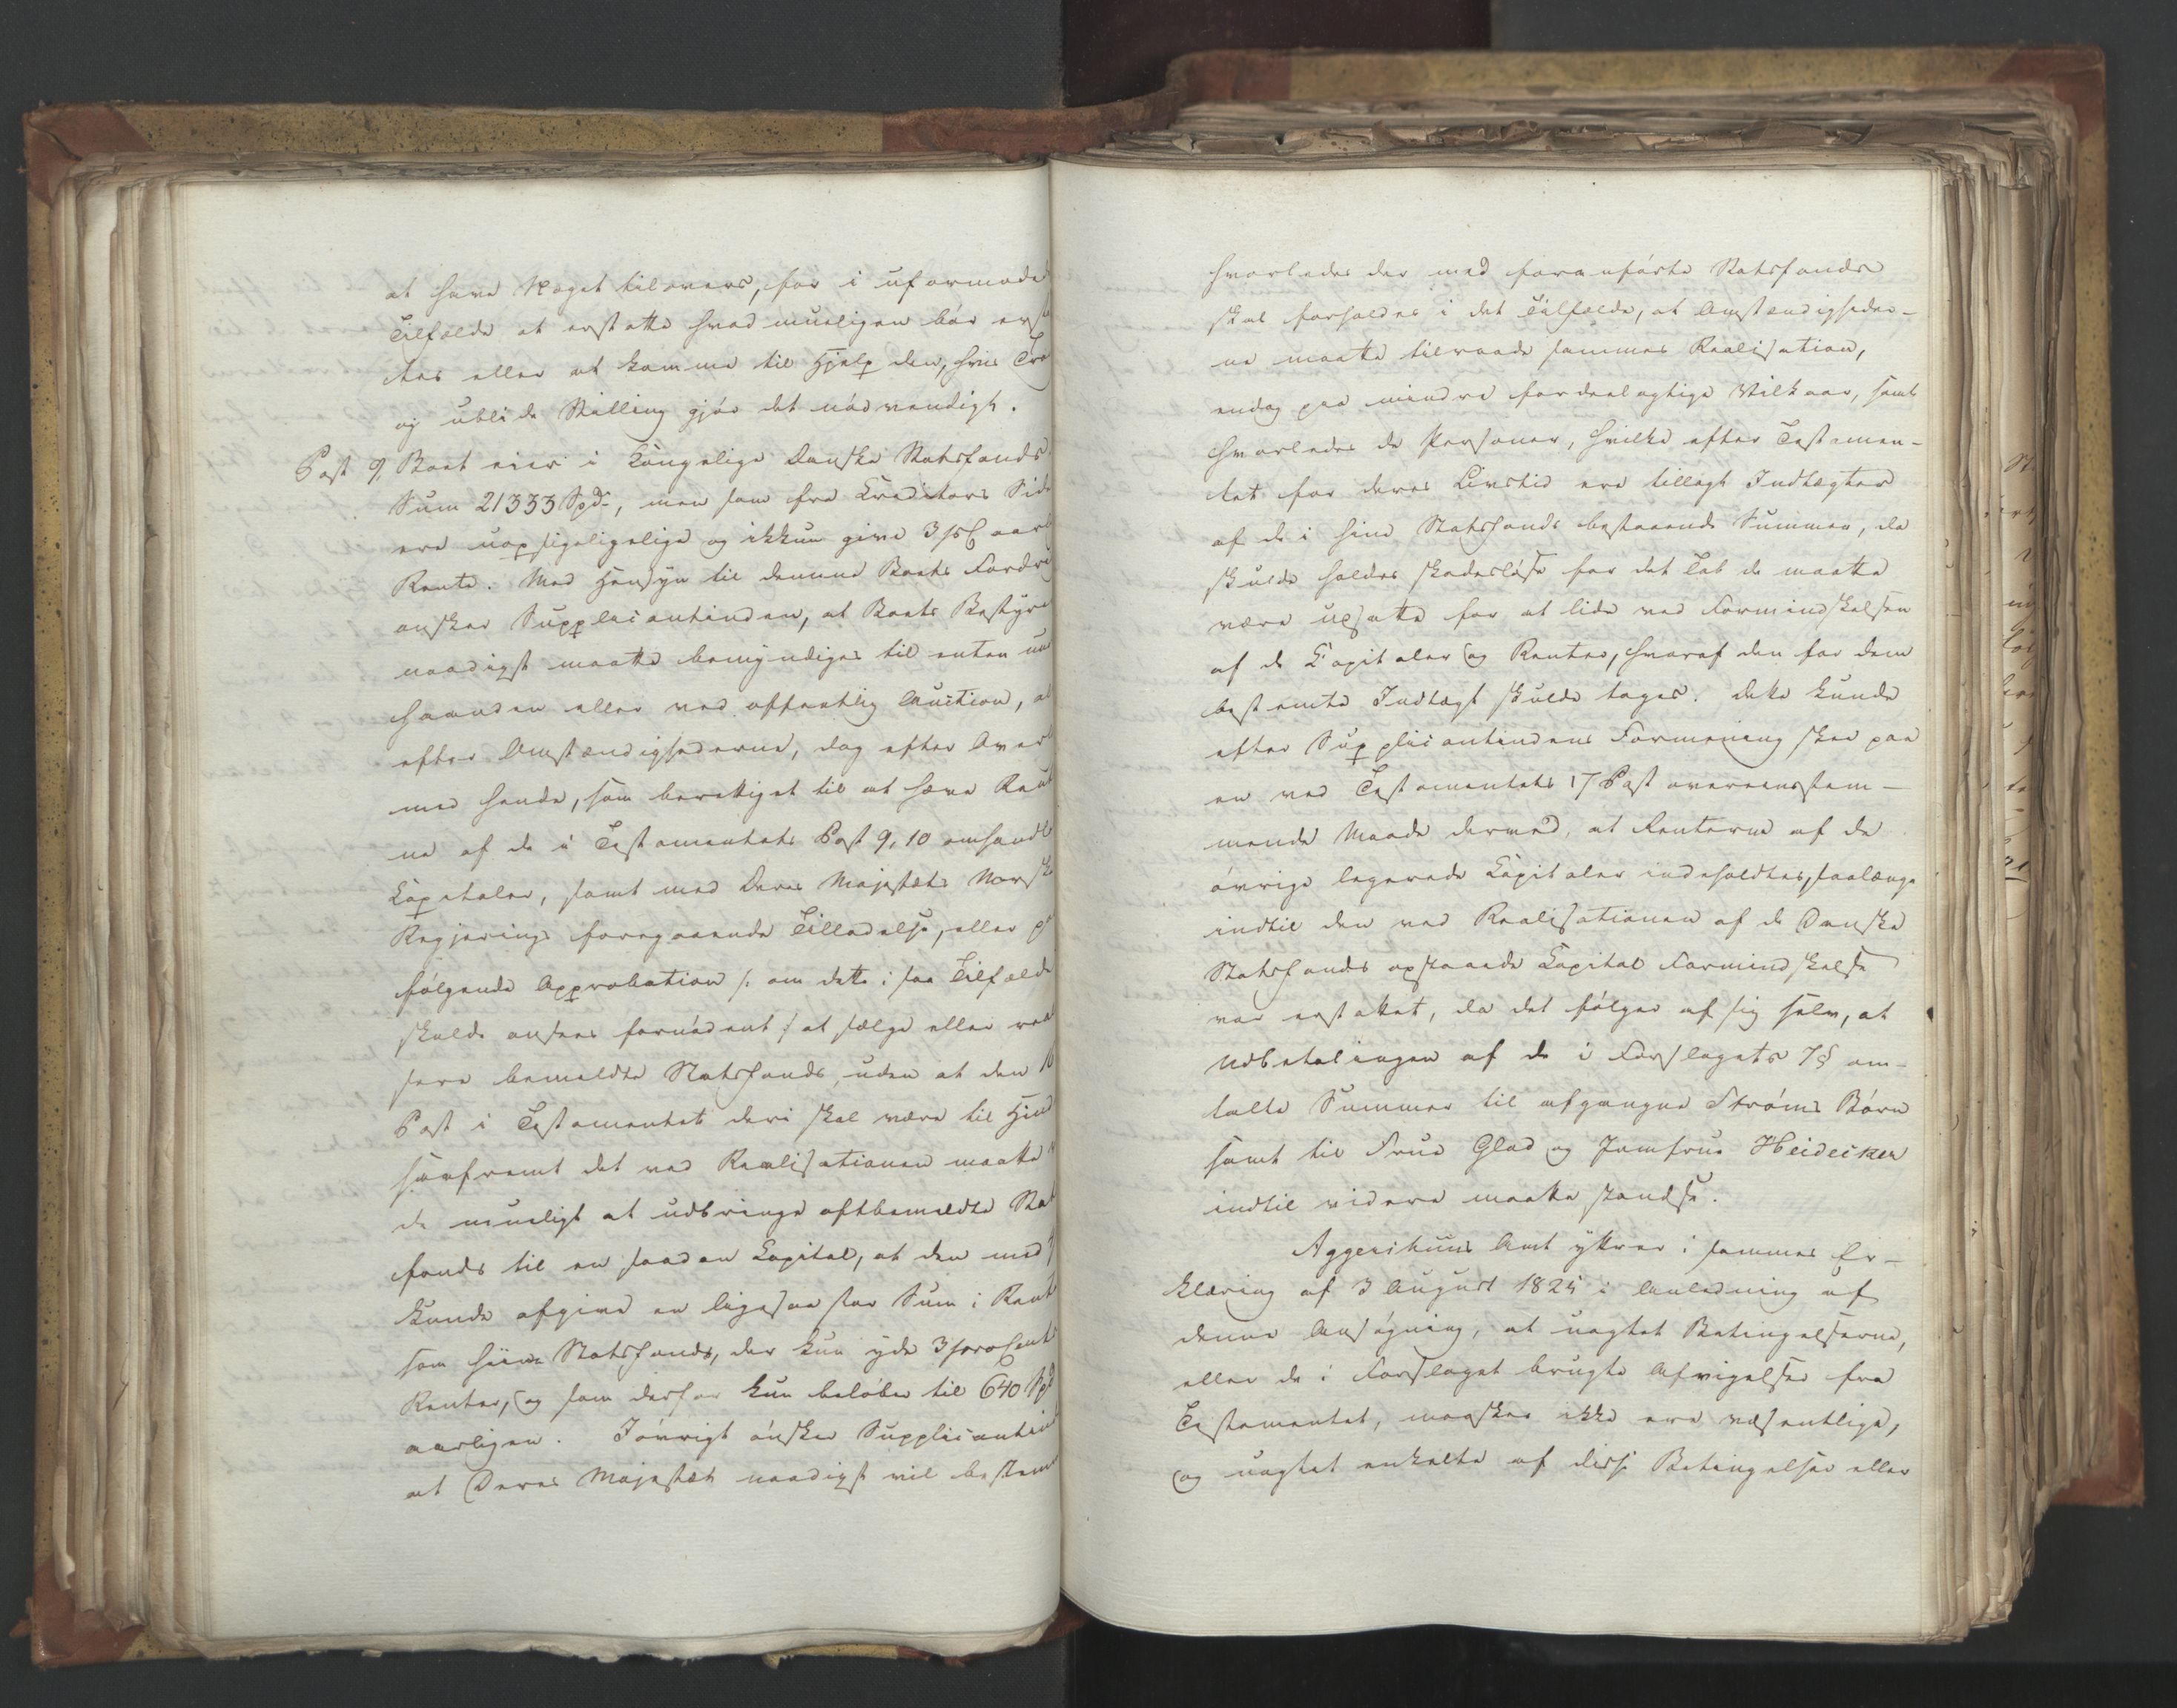 at have Noget tilovers, for i uformode
Tilfælde at erstatte hvad mueligen bör erst
tes eller at komme til Hjelp den, hvis Tra
og ublide Stilling gjör det nödvendigt.
Post 9, Boet eier i Kongelige Danske Statsfonds
Sum 21333 Spd, men som fra Creditors Side
ere uopsigeligelige og ikkun give 3 pC aarl
Rente. Med Hensyn til denne Boets Fordri
önsker Supplicantinden, at Boets Bestyre
naadigst maatte bemyndiges til enten un
haanden eller ved offentlig Auction, al
efter Omstændighederne, dog efter Over
med hende, som berettiget til at hæve Rent
ne af de i Testamentets Post 9, 10 omhandl
Capitaler, samt med Deres Majestæts Norske
Regjerings foregaaende Tilladelse, eller p
fölgende Approbation /: om dette i saa Tilfælde
skulde ansees fornödent :/ at sælge eller rea
sere bemeldte Statsfonds, uden at den 10
Post i Testamentet deri skal være til Hind
saafremt det ved Realisationen maatte v
de mueligt at udbringe oftbemeldte Stat
fonds til en saadan Capital, at den med 4
kunde afgive en ligesaa stor Sum i Rent
som hiine Statsfonds, der kun yde 3 proCents
Renter, og som derfor kun belöbe til 640 Spd
aarligen. Iövrigt önsker Supplicantind
at Deres Majestæt naadigst vil bestem
hvorledes der med foranförte Statsfonds
skal forholdes i det Tilfælde, at Omstændigheder-
ne maatte tilraade sammes Realisation,
endog paa mindre fordeelagtige Vilkaar, samt
hvorledes de Personer, hvilke efter Testamen-
tet for deres Livstid ere tillagt Indtægter
af de i hine Statsfonds bestaaende Summer, da
skulde holdes skadesløse for det Tab de maatte
være udsatte for at lide ved Formindskelsen
af de Capitaler og Renter, hvoraf den for dem
bestemte Indtægt skulde tages. Dette kunde
efter Supplicantindens Formening skee paa
en ved Testamentets 17 Post overeensstem-
mende Maade derved, at Renterne af de
övrige legerede Capitaler indeholdtes, saalænge
indtil den ved Realisationen af de Danske
Statsfonds opstaaede Capital Formindskelse
var erstattet, da det fölger af sig selv, at
Udbetalingen af de i Forslagets 7 § om-
talte Summer til afgangne Ströms Börn
samt til Frue Glad og Jomfrue Heidecker
indtil videre maatte standse.
Aggershuus Amt yttrer i sammes Er-
klæring af 3 August 1825 i Anledning af
denne Ansögning, at uagtet Betingelserne,
eller de i Forslaget brugte Afvigelser fra
Testamentet, maaskee ikke ere væsentlige,
og uagtet enkelte af disse Betingelser eller